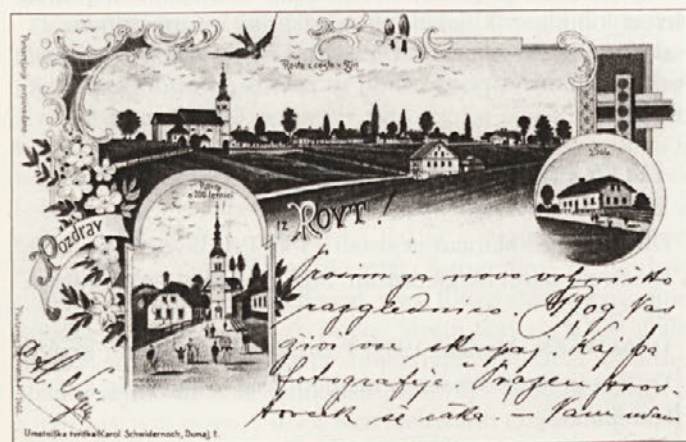 Ponarejanje prepovedano
Rovte z ceste v Žiri
Šola
Rovte
o 200 letnici
Pozdrav
iz ROVT!
Prosim za novo
razglednico. Bog Vas
živi vse skupaj. Kaj pa
fotografije? Prazen pros-
torček še čaka. — Vam udani
Umetniška tvrdka Karol Schwidernoch, Dunaj, I.